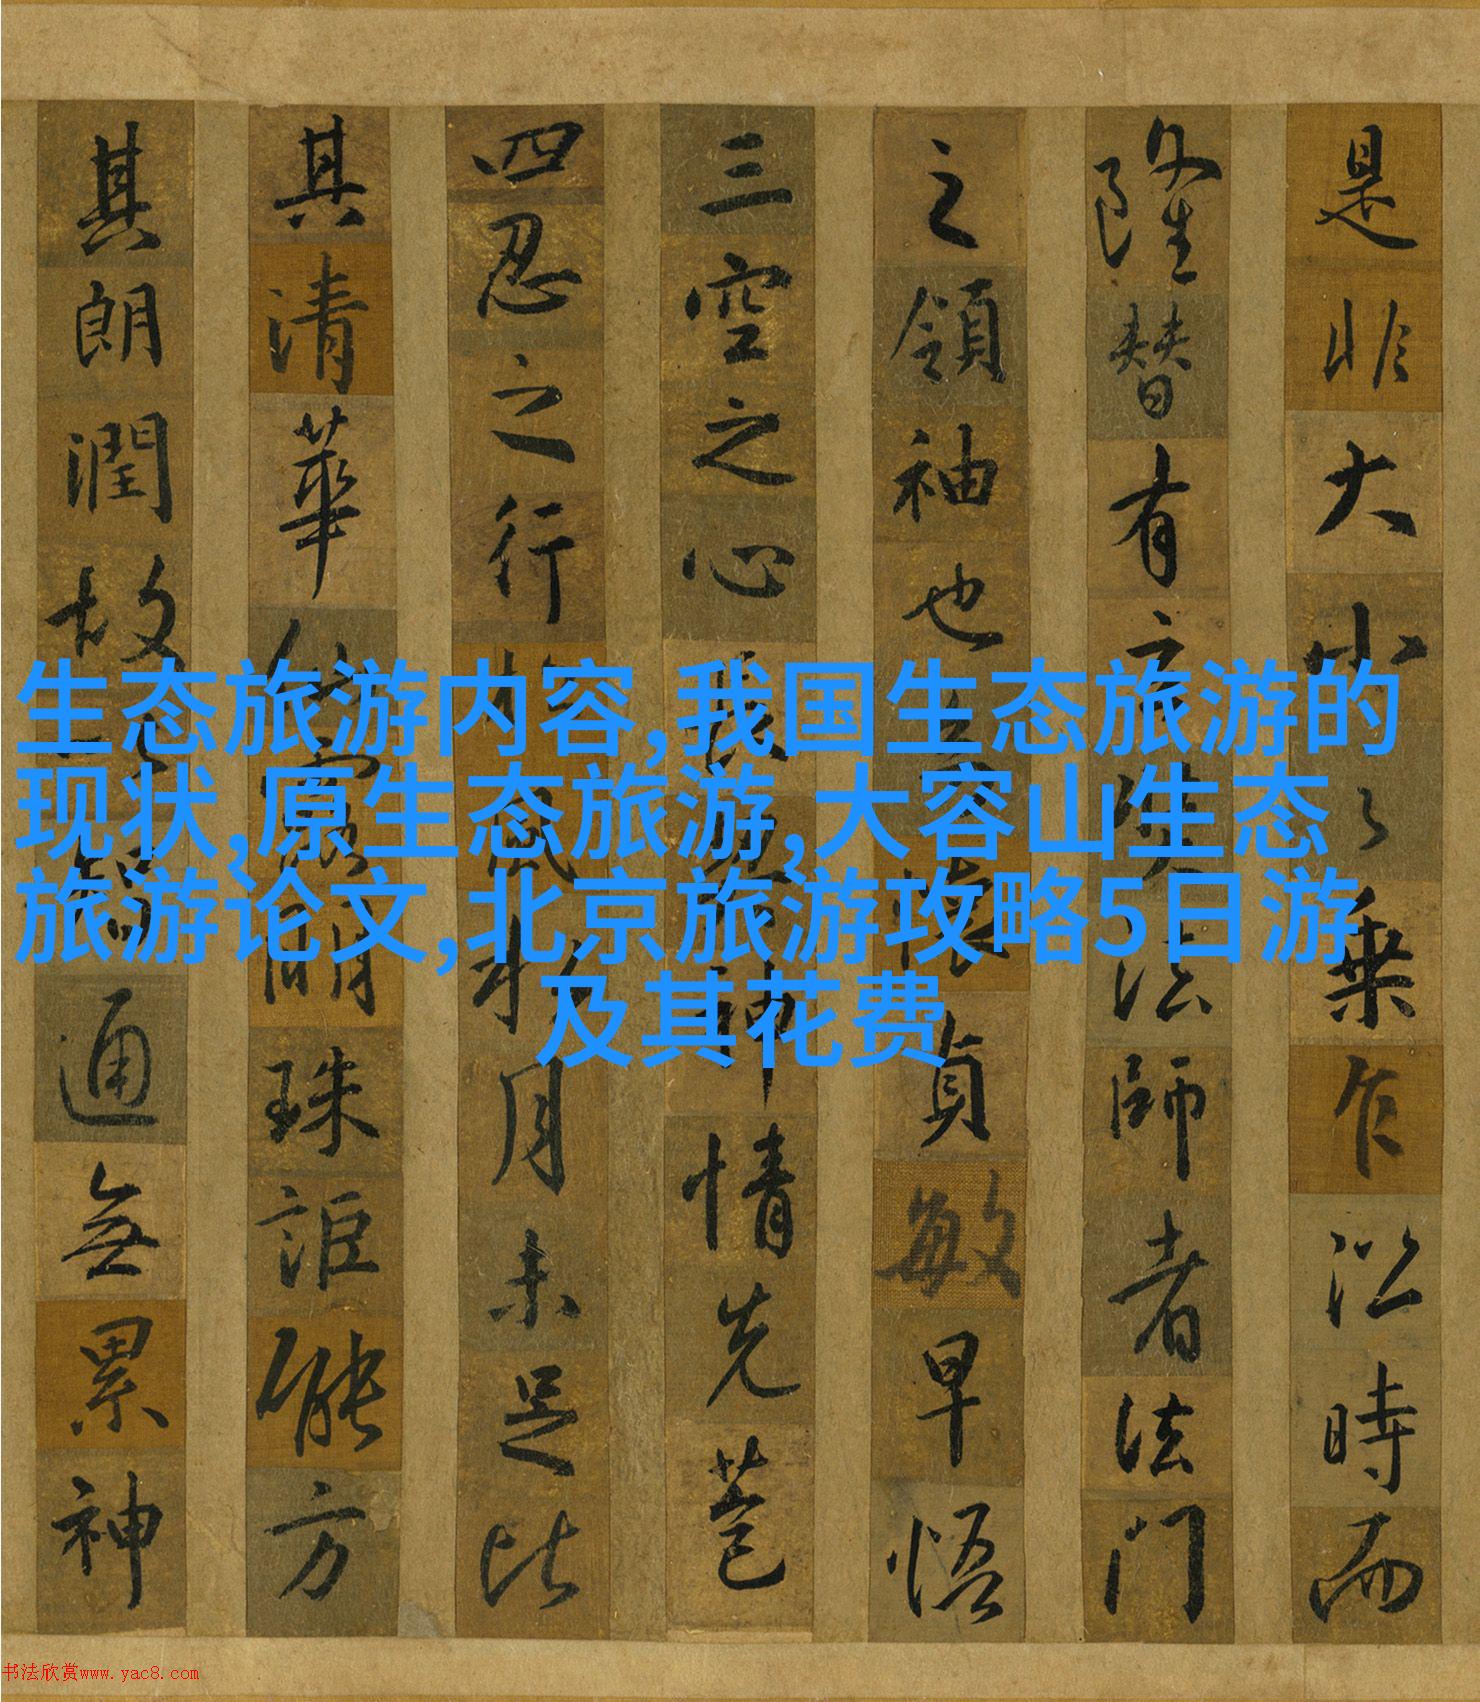 是非大小之乘乍沿時而
隆替有玄奘法師者法門
之領袖也幼懷貞敏早悟
三空之心長契神情先苞
四忍之行松風水月未足比
其清華仙露明珠詎能方
其朗潤故以智通無累神
生态旅游内容,我国生态旅游的
现状,原生态旅游,大容山生态
旅游论文,北京旅游攻略5日游
及其花费
书法欣赏www.yac8.com